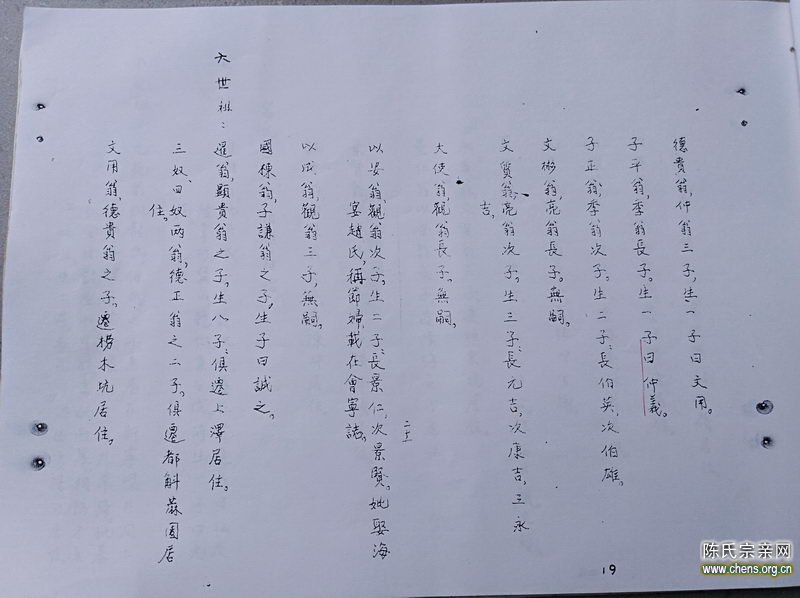 德貴翁,仲翁三子,生一子曰文用。
子平翁,季翁長子。生一子曰仲義。
子正翁,季翁次子。生二子:長伯英,次伯雄。
文彬翁,亮翁長子。無嗣。
文質翁,亮翁次子。生三子:長元吉,次康吉,三永
吉。
大使翁,觀翁長子。無嗣。
二十一
以安翁,觀翁次子。生二子:長景仁,次景賢。妣娶海
宴趙氏,稱節婦載在會寧誌。
以成翁,觀翁三子,無嗣。
國棟翁,子謙翁之子,生子曰誠之。
六世祖:暹翁,顯貴翁之子。生八子:俱遷上澤居住。
三奴、四奴两翁,德正翁之二子。俱遷都斛蔴園居
住。
文用翁,德貴翁之子。遷榜木坑居住。
19
陈氏宗亲网
www.chens.org.cn